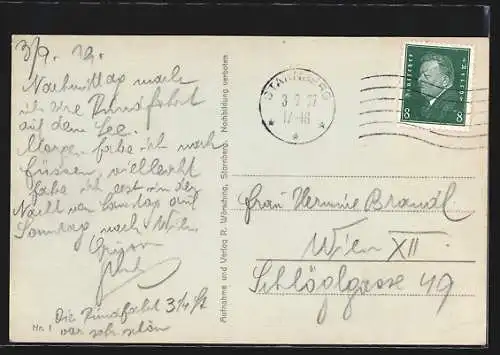 3/9. 19.
Nachmittag mache
ich eine Rundfahrt
auf dem See.
Morgen fahre ich nach
Füssen, vielleicht
fahre ich erst in der
Nacht von Samstag auf
Sonntag nach Wien.
Die Rundfahrt 3¼ St
war sehr schön
Nr. 1
Aufnahme und Verlag R. Wörsching, Starnberg. Nachbildung verboten
STARNBERG
17-18
Deutsches
Reich
8 8
Frau Hermine Brandl
Wien XII
Schlöglgasse 49